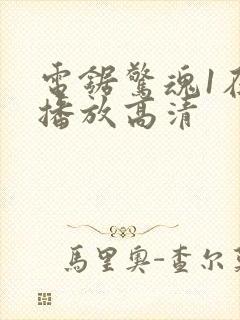 電鋸驚魂1在
播放高清
馬里奧-查尔莫